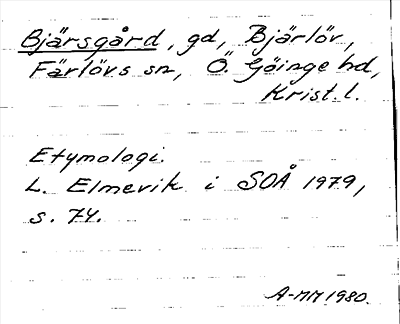 Bjärsgård, gd, Bjärlöv,
Färlövs sn, Ö. Göinge hd,
Krist. l.
Etymologi.
L. Elmevik i SOÅ 1979,
s. 74.
A-MM 1980.